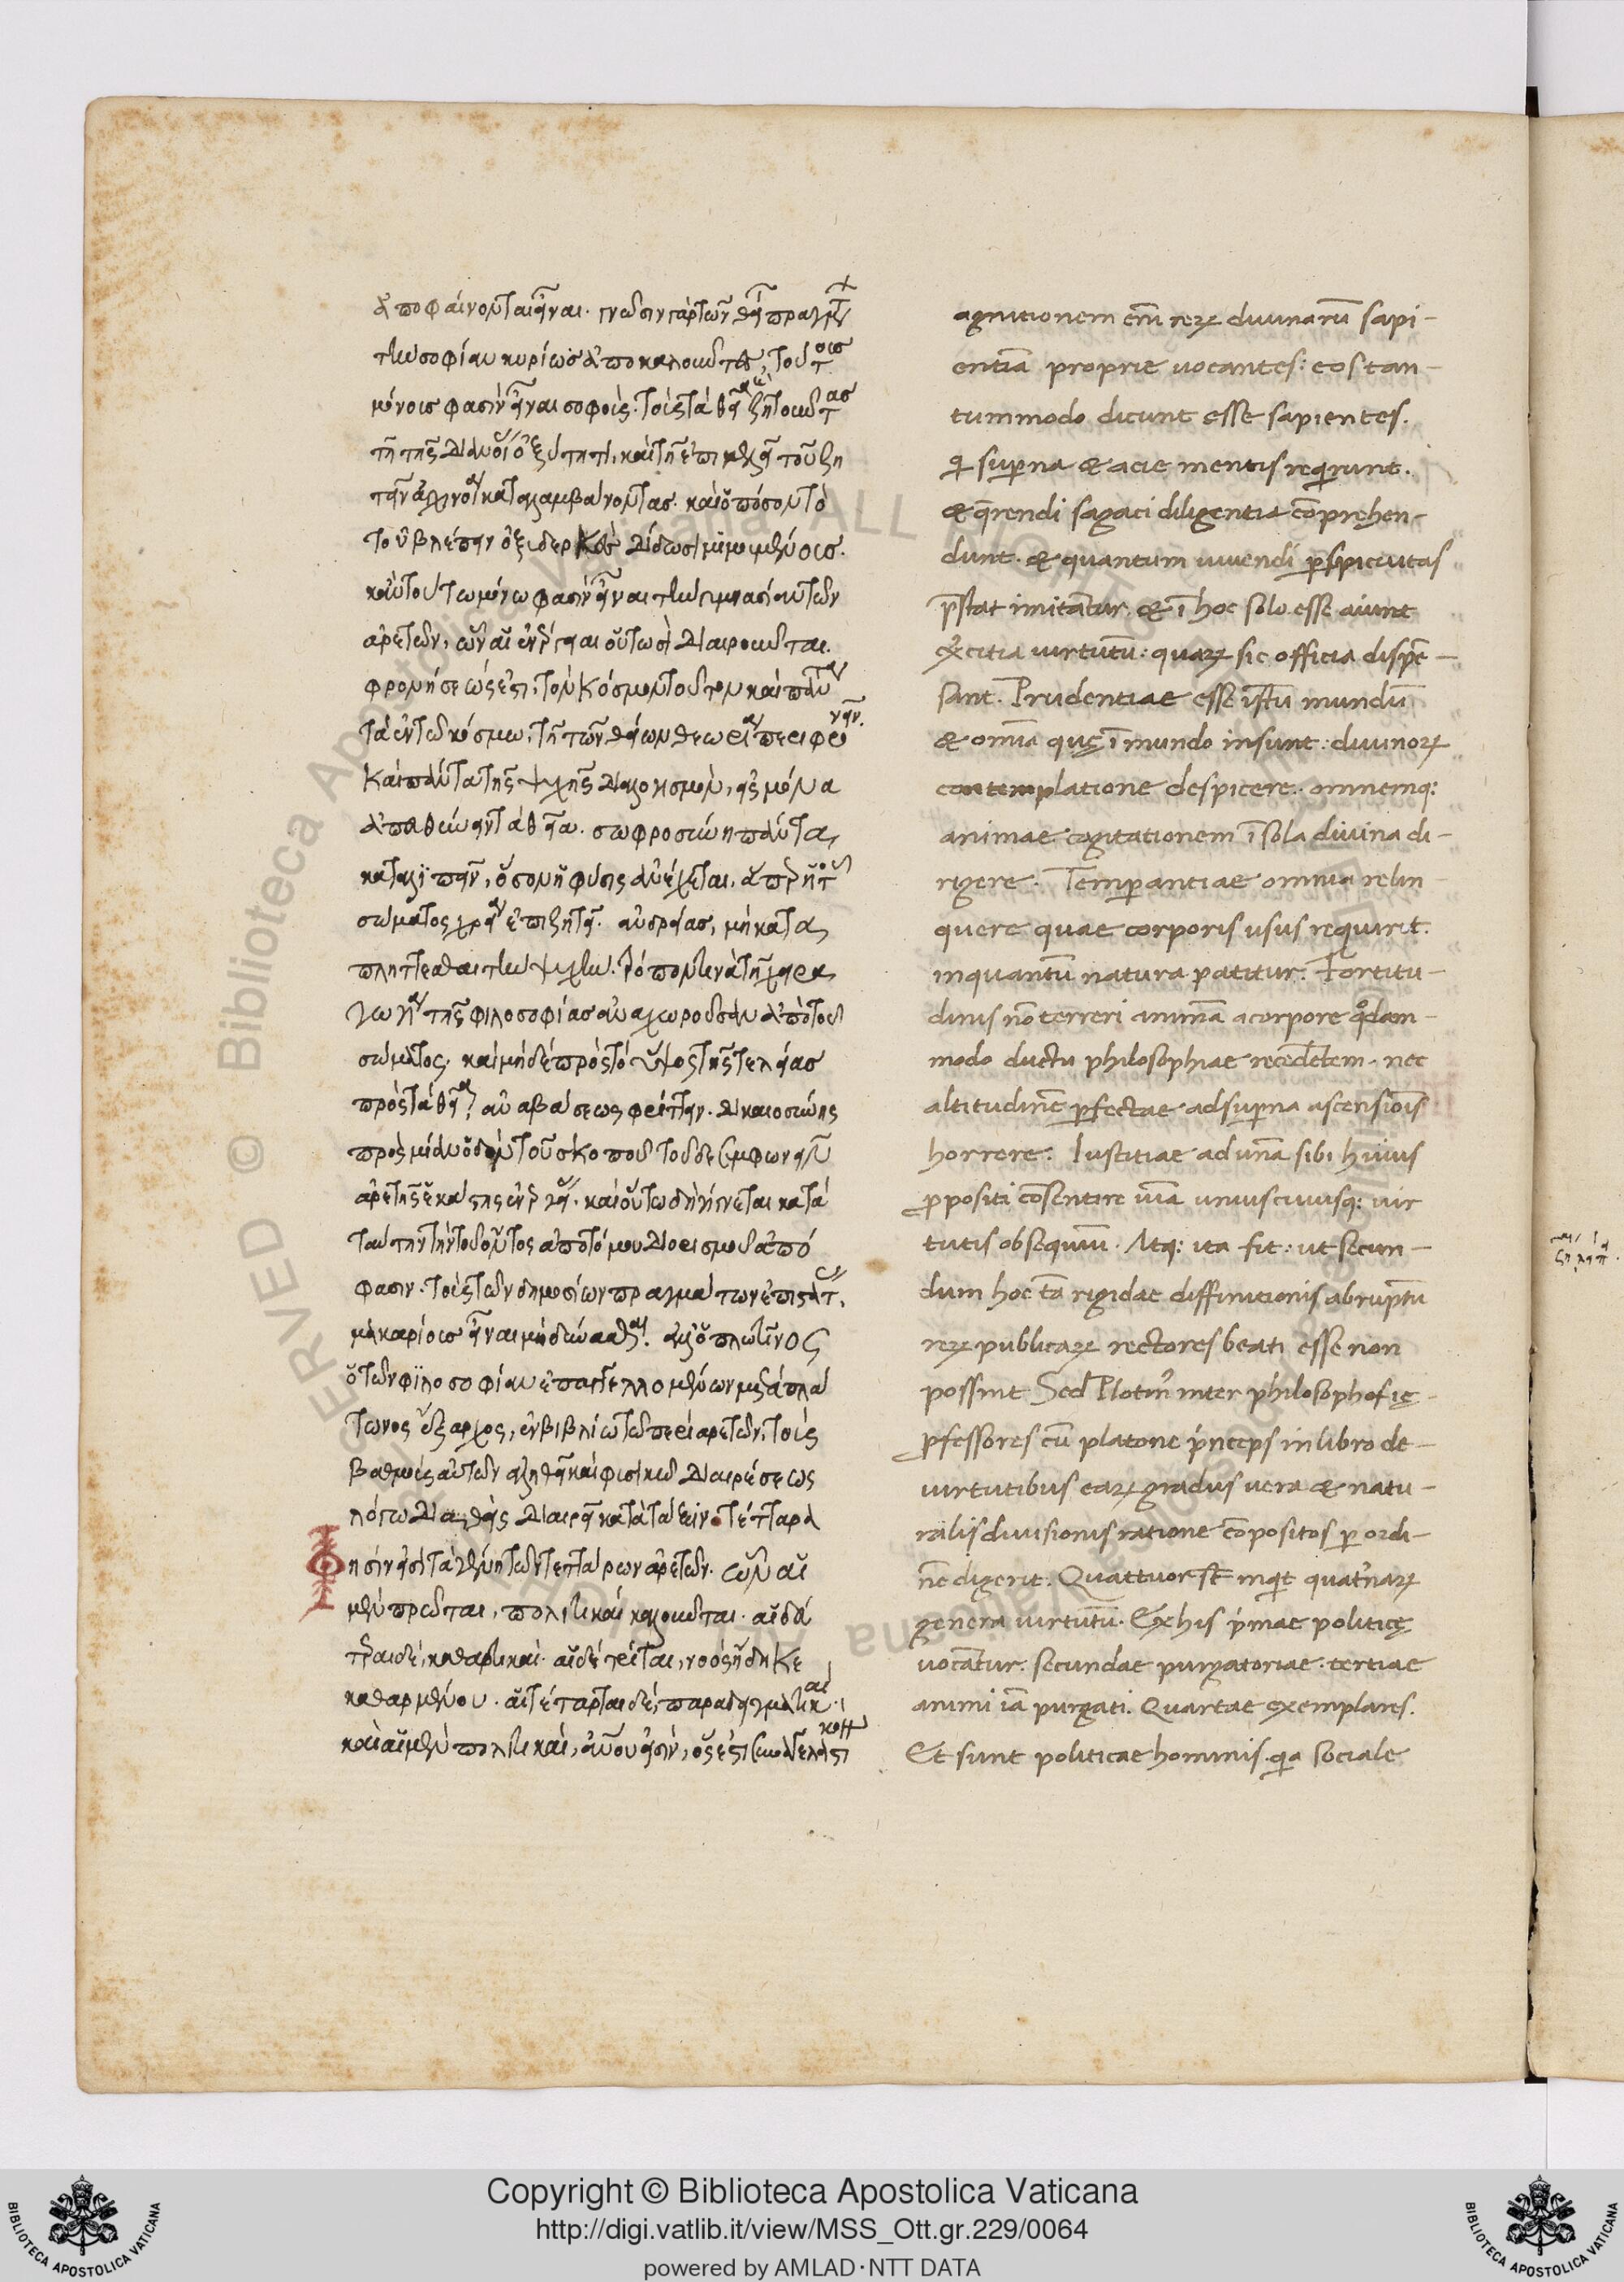 ἀποφαίνονται εἶναι. γνῶσιν γὰρ τῶν θείων πραγμάτων
τὴν σοφίαν κυρίως ἀποκαλοῦντες, τούτοις
μόνοις φασὶν εἶναι σοφοῖς. τοῖς τὰ θεῖα ζητοῦντας
τῇ τῆς διανοίας ὀξύτητι, καὶ τῇ ἐπιμελείᾳ τοῦ ζη
τεῖν ἀγχινοίᾳ καταλαμβάνοντας. καὶ ὁπόσον τὸ
τοῦ βλέπειν ὀξυδερκὲς δίδωσι μιμουμένοις.
κἀν τούτω μόνω φασὶν εἶναι τὴν γυμνασίαν τῶν
ἀρετῶν, ὧν αἱ ἐνέργειαι οὕτωσὶ διαιροῦνται.
φρονήσεώς ἐστι, τὸν κόσμον τοῦτον καὶ πάντα
τὰ ἐν τῶ κόσμω, τῇ τῶν θείων θεωρίᾳ περιφρονεῖν.
καὶ πάντα τῆς ψυχῆς διαλογισμὸν, εἰς μόνα
ἀπευθύνειν τὰ θεῖα. σωφροσύνη πάντα
καταλιπεῖν, ὅσον ἡ φύσις ἀνέχεται, ἅπερ ἡ τοῦ
σώματος χρεία ἐπιζητεῖ. ἀνδρείας, μὴ κατα
πλήττεσθαι τὴν ψυχὴν. τρόπον τινὰ τῇ χειρα
γωγίᾳ τῆς φιλοσοφίας ἀναχωροῦσαν ἀπὸ τοῦ
σώματος, καὶ μηδὲ πρὸς τὸ ὕψος τῆς τελείας
πρὸς τὰ θεῖα ἀναβάσεως φρίττειν. δικαιοσύνης
πρὸς μίαν ὁδὸν τοῦ σκοποῦ τοῦδε συμφωνεῖν
ἀρετῆς ἑκάστης ἐνέργειαν. καὶ οὕτω δὴ γίνεται κατὰ
ταύτην τὴν τοῦ ὄντος ἀποτόμου διορισμοῦ ἀπό
φασιν. τοῖς τῶν δημοσίων πραγμάτων ἐπιστάταις,
μακαρίοις εἶναι μὴ δύνασθαι. ἀλλ' ὁ πλωτῖνος
ὁ τῶν φιλοσοφίαν ἐπαγγελλομένων μετὰ πλά
τωνος ἔξαρχος, ἐν βιβλίω τῶ περὶ ἀρετῶν, τοὺς
βαθμοὺς αὐτῶν ἀληθεῖ καὶ φυσικῶ διαιρέσεως
λόγω διαιρεῖ κατὰ τάξιν. τέτταρα
Φησίν εἰσι τὰ γένη τῶν τεττάρων ἀρετῶν. ὧν αἱ
μὲν πρῶται, πολιτικαὶ καλοῦνται. αἱ δὲ
καθαρτικαί. αἱ δὲ τρίται, νοὸς ἤδη κε
καθαρμένου. αἱ τέταρται δὲ, παραδειγματικαί.
καὶ αἱ μὲν πολιτικαὶ, ἀνθρώπου εἰσὶν, ὅς ἐστι
agnitionem em̄ reꝝ diuinarū sapi-
entiā proprie uocantes: eos tan-
tummodo dicunt esse sapientes.
qi superna & acie mentis reqirunt.
& qrendi sagaci diligentia cōprehen-
dunt. & quantum uiuendi pspicuitas
pstat imitantur. & ī hoc solo esse aiunt
exercitia uirtutū: quaꝝ sic officia dispē-
sant. Prudentiae esse istū mundū
& omnia quę ī mundo insunt: diuinoꝝ
contemplatione despicere. omnemq:
animae cogitationem ī sola diuina di-
rigere. Temperantiae omnia relin-
quere quae corporis usus requirit.
inquantū natura patitur. Fortitu-
dinis nō terreri animā a corpore qodam-
modo ductu philosophiae recedētem. nec
altitudinē pfectae ad superna ascensionis
horrere. Iustitiae ad unā sibi huius
ppositi cōsentire uiā uniuscuiusq: uir
tutis obsequium. Atq: ita fit: ut secun-
dum hoc tā rigidae diffinitionis abruptū
reꝝ publicaꝝ rectores beati esse non
possint Sed Plotin9 inter philosophię
pfessores cū platone princeps in libro de
uirtutibus eaꝝ gradus uera & natu-
ralis diuisionis ratione cōpositos p ordi-
nē digerit. Quattuor st̄ inqit quaternaꝝ
genera uirtutū. Ex his primae politicę
uocātur. secundae purgatoriae. tertiae
animi iā purgati. Quartae exemplares.
Et sunt politicae hominis. qia sociale
Copyright © Biblioteca Apostolica Vaticana
http://digi.vatlib.it/view/MSS_Ott.gr.229/0064
powered by AMLAD·NTT DATA